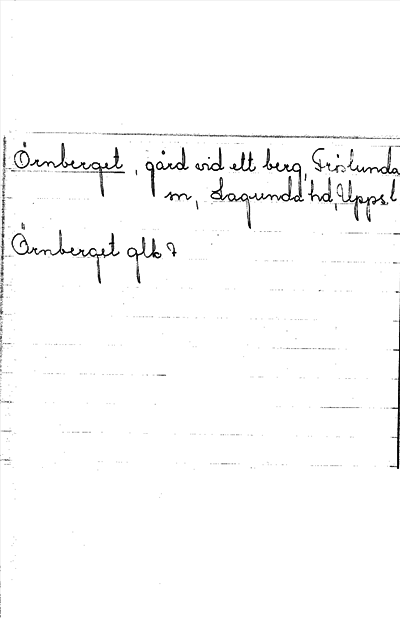 Örnberget, gård vid ett berg, Fröslunda
sn, Lagunda hd, Upps. l
Örnberget glb ?